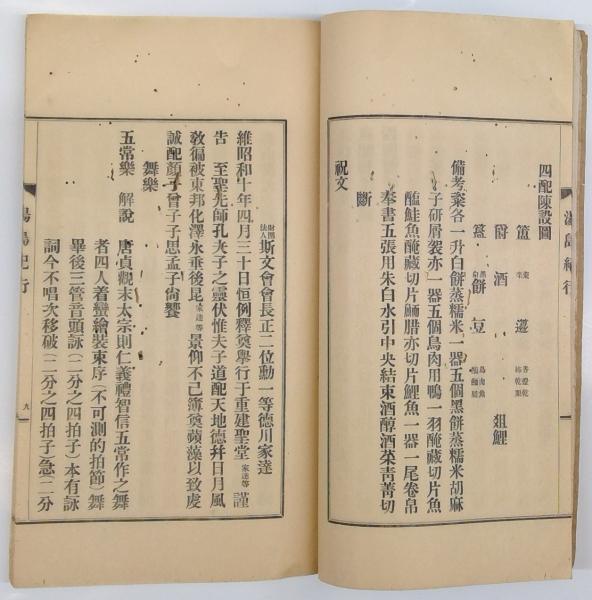 四配陳設圖
簠 棗 籩
爵 酒 俎 鯉
簋 餅 豆
備考粢各一升白餅蒸糯米一器五個黑餅蒸糯米胡麻
子研屑袈亦一器五個鳥肉用鴨一羽醃藏切片魚
醢鮭魚醃藏切片鱐腊亦切片鯉魚一器一尾卷帛
奉書五張用朱白水引中央結束酒醇酒菜青菁切
斷
祝文
湯島紀行
維昭和十年四月三十日恒例釋奠舉行于重建聖堂
財團法人斯文會會長正二位勳一等德川家達 家達等 謹
告 至聖先師孔夫子之靈伏惟夫子道配天地德幷日月風
敎徧被東邦化澤永垂後昆 家達等 景仰不已薄奠蘋藻以致虔
誠配顏子曾子子思孟子尙饗
舞樂
五常樂 解說 唐貞觀末太宗則仁義禮智信五常作之舞
者四人着蠻繪裝束序(不可測的拍節)舞
畢後三管音頭詠(二分之四拍子)本有詠
詞今不唱次移破(二分之四拍子)急(二分
湯島紀行 九